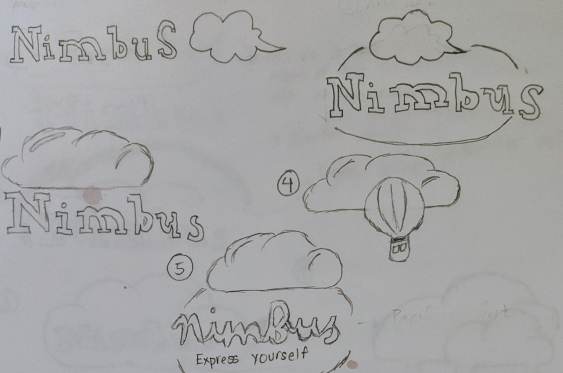 Nimbus
Nimbus
Nimbus
4
5
nimBus
Express yourself